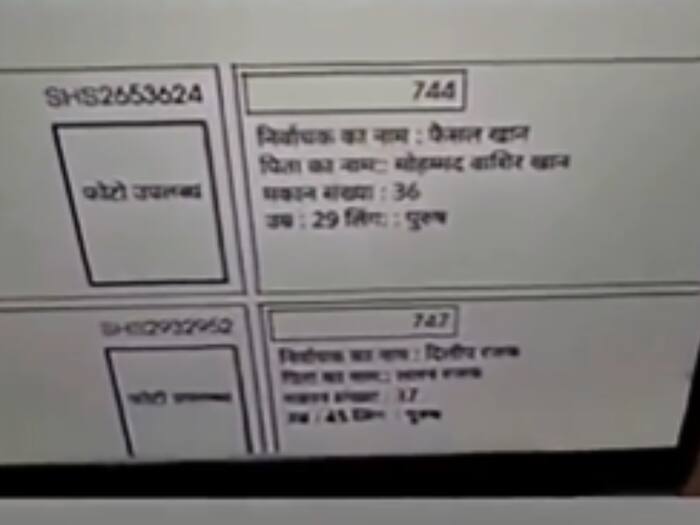 SHS2653624
744
फोटो उपलब्ध
निर्वाचक का नाम : फैसल खान
पिता का नाम: मोहम्मद वाशिर खान
मकान संख्या : 36
उम्र : 29 लिंग: : पुरुष
SHS2932952
747
फोटो उपलब्ध
निर्वाचक का नाम : दिलीप रजक
पिता का नाम: रजक
मकान संख्या : 37
उम्र : 45 लिंग : पुरुष